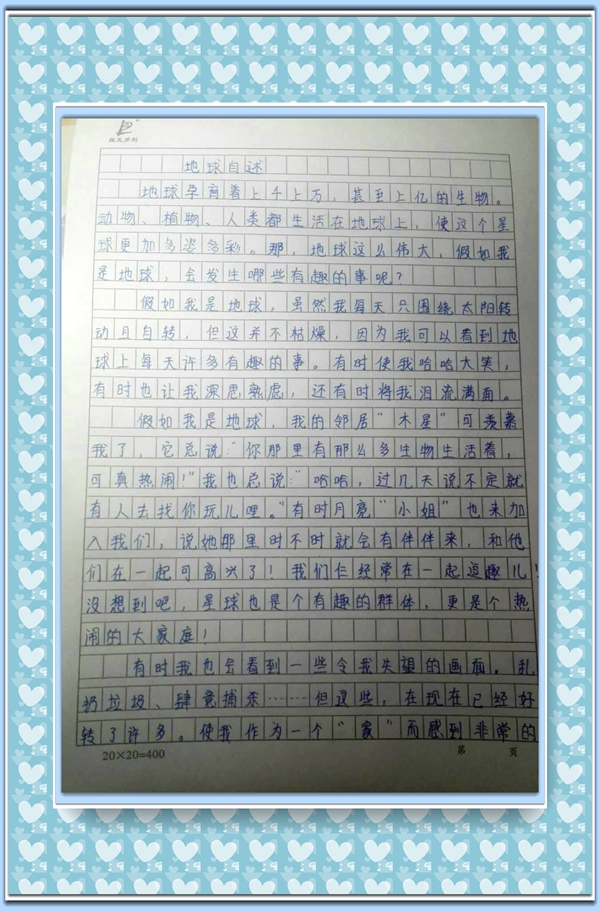 地球自述
地球孕育着上千上万，甚至上亿的生物。
动物、植物、人类都生活在地球上，使这个星
球更加多姿多彩。那，地球这么伟大，假如我
是地球，会发生哪些有趣的事呢？
假如我是地球，虽然我每天只围绕太阳转
动且自转，但这并不枯燥，因为我可以看到地
球上每天许多有趣的事。有时使我哈哈大笑，
有时也让我深思熟虑，还有时将我泪流满面。
假如我是地球，我的邻居“木星”可羡慕
我了，它总说：“你那里有那么多生物生活着，
可真热闹！”我也总说：“哈哈，过几天说不定就
有人去找你玩儿哩。”有时月亮“小姐”也来加
入我们，说她那里时不时就会有伴伴来，和他
们在一起可高兴了！我们仨经常在一起逗趣儿！
没想到吧，星球也是个有趣的群体，更是个热
闹的大家庭！
有时我也会看到一些令我失望的画面。乱
扔垃圾、肆意捕杀………但这些，在现在已经好
转了许多。使我作为一个“家”而感到非常的
20×20=400 第 页